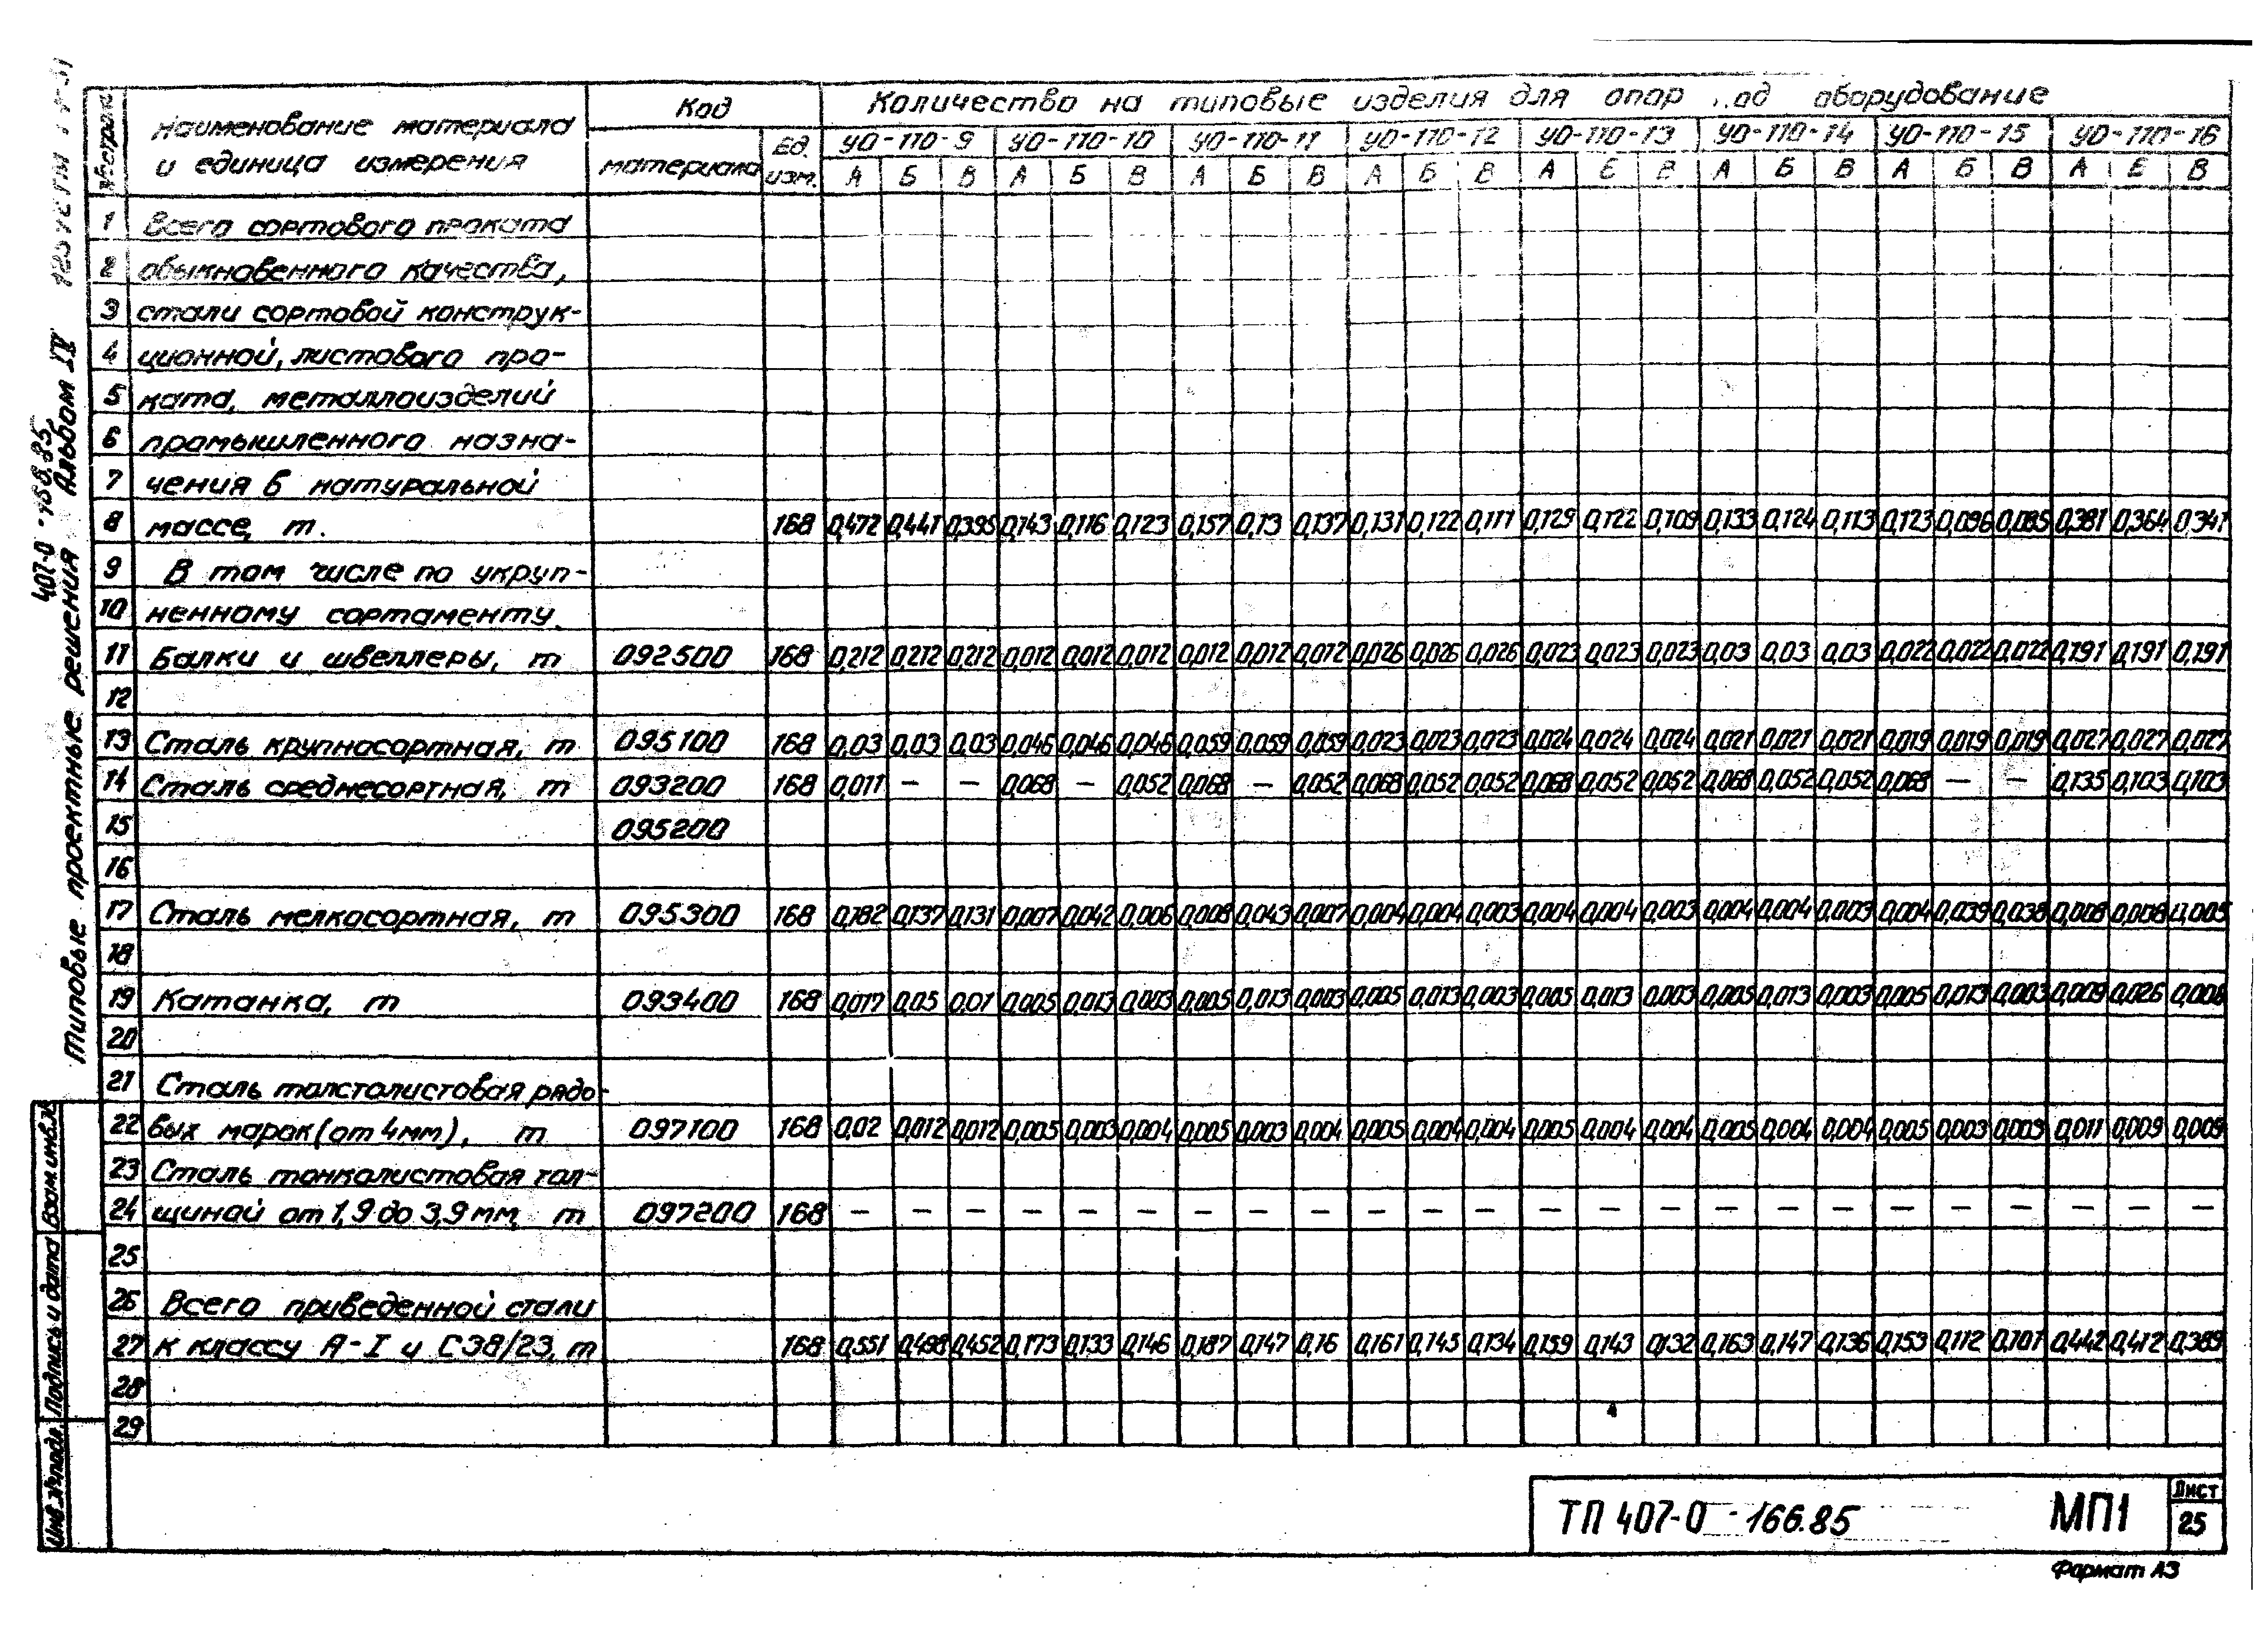 407-0-166.85
Типовые проектные решения Альбом IV
№ строки
Наименование материала и единица измерения
Код
материала
Ед. изм.
Количество на типовые изделия для опор под оборудование
УО-110-9 УО-110-10 УО-110-11 УО-110-12 УО-110-13 УО-110-14 УО-110-15 УО-110-16
А Б В А Б В А Б В А Б В А Б В А Б В А Б В А Б В
1 Всего сортового проката
2 обыкновенного качества,
3 стали сортовой конструк-
4 ционной, листового про-
5 ката, металлоизделий
6 промышленного назна-
7 чения в натуральной
8 массе, т. 168 0,472 0,441 0,395 0,143 0,116 0,123 0,157 0,13 0,137 0,131 0,122 0,111 0,129 0,122 0,109 0,133 0,124 0,113 0,123 0,096 0,085 0,381 0,364 0,341
9 В том числе по укруп-
10 ненному сортаменту
11 Балки и швеллеры, т 092500 168 0,212 0,212 0,212 0,012 0,012 0,012 0,012 0,012 0,012 0,026 0,026 0,026 0,023 0,023 0,023 0,03 0,03 0,03 0,022 0,022 0,022 0,191 0,191 0,191
12
13 Сталь крупносортная, т 095100 168 0,03 0,03 0,03 0,046 0,046 0,046 0,059 0,059 0,059 0,023 0,023 0,023 0,024 0,024 0,024 0,021 0,021 0,021 0,019 0,019 0,019 0,027 0,027 0,027
14 Сталь среднесортная, т 093200 168 0,011 — — 0,068 — 0,052 0,068 — 0,052 0,068 0,052 0,052 0,068 0,052 0,052 0,068 0,052 0,052 0,068 — — 0,135 0,103 0,103
15 095200
16
17 Сталь мелкосортная, т 095300 168 0,182 0,137 0,131 0,007 0,042 0,006 0,008 0,043 0,007 0,004 0,004 0,003 0,004 0,004 0,003 0,004 0,004 0,003 0,004 0,039 0,038 0,008 0,008 0,005
18
19 Катанка, т 093400 168 0,017 0,05 0,01 0,005 0,013 0,003 0,005 0,013 0,003 0,005 0,013 0,003 0,005 0,013 0,003 0,005 0,013 0,003 0,005 0,013 0,003 0,009 0,026 0,008
20
21 Сталь толстолистовая рядо-
22 вых марок (от 4мм), т 097100 168 0,02 0,012 0,012 0,005 0,003 0,004 0,005 0,003 0,004 0,005 0,004 0,004 0,005 0,004 0,004 0,005 0,004 0,004 0,005 0,003 0,003 0,011 0,009 0,009
23 Сталь тонколистовая тол-
24 щиной от 1,9 до 3,9 мм, т 097200 168 — — — — — — — — — — — — — — — — — — — — — — — —
25
26 Всего приведенной стали
27 к классу А-I и С38/23, т 168 0,551 0,498 0,452 0,173 0,133 0,146 0,187 0,147 0,16 0,161 0,145 0,134 0,159 0,143 0,132 0,163 0,147 0,136 0,153 0,112 0,101 0,442 0,412 0,389
28
29
Взам инв.№
Подпись и дата
Инв.№ подл.
ТП 407-0-166.85 МП1
Лист
25
Формат А3